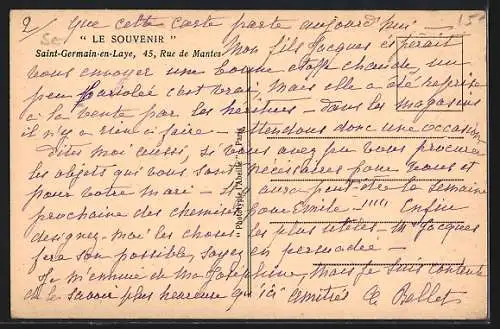 2/ que cette carte parte aujourd'hui — 15
" LE SOUVENIR " Mon fils Jacques espérait
Saint-Germain-en-Laye, 45, Rue de Mantes
vous envoyer une bonne étoffe chaude un
peu bariolée c'est vrai, mais elle a été reprise
à la vente par les héritiers — dans les magasins
il n'y a rien à faire — attendons donc une occasion
Dites moi aussi, si vous avez pu vous procurer
les objets qui vous sont nécessaires pour vous et
pour votre mari — il y aura peut-être la semaine
prochaine des chemises pour Emile — """ Enfin
désignez-moi les choses les plus utiles — Mr Jacques
fera son possible, soyez en persuadée —
Je m'ennuie de ma Joséphine, mais je suis contente
de la savoir plus heureuse qu'ici amitiés C. Bellet
Phototypie
Paris